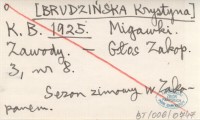 [BRUDZIŃSKA Krystyna]
K. B. 1925. Migawki.
Zawody. — Głos Zakop.
3, nr 8.
Sezon zimowy w Zako-
panem.